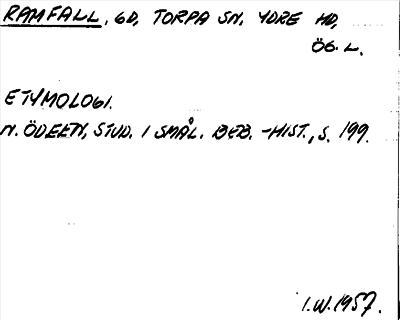 RAMFALL, GD, TORPA SN, YDRE HD,
ÖG. L.
ETYMOLOGI.
N. ÖDEEN, STUD. I SMÅL. BEB.-HIST., S. 199.
I.W. 1957.